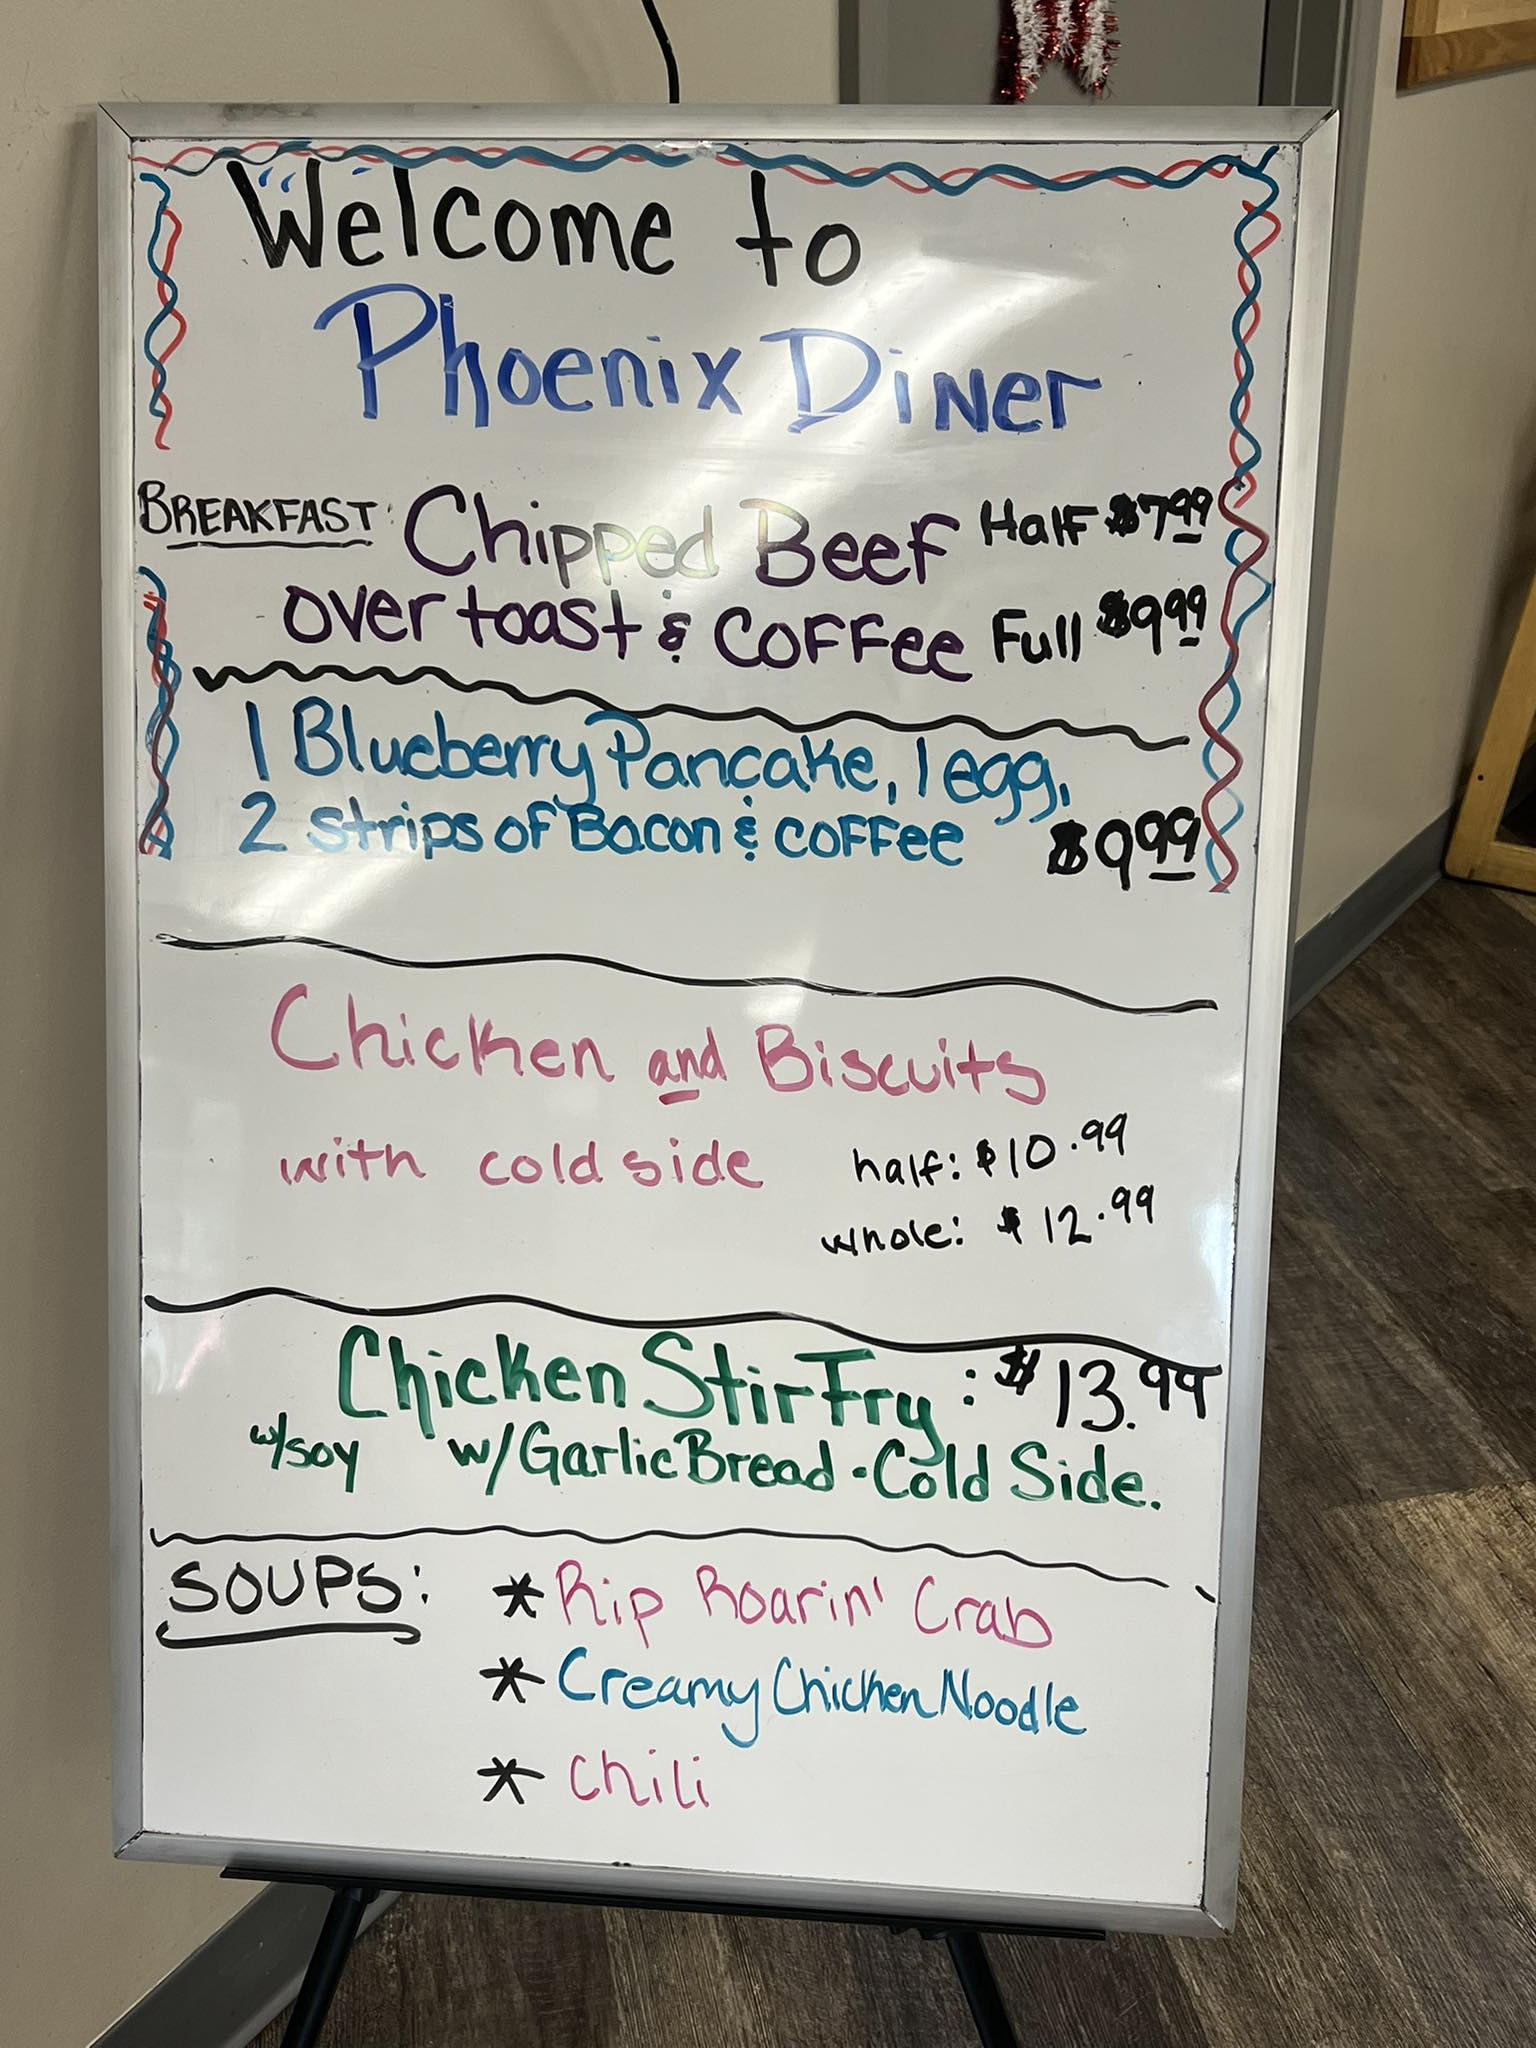 Welcome to
Phoenix Diner
BREAKFAST: Chipped Beef Half $7.99
over toast & Coffee Full $9.99
1 Blueberry Pancake, 1 egg,
2 strips of Bacon & coffee $9.99
Chicken and Biscuits
with cold side half: $10.99
whole: $12.99
Chicken Stir Fry: $13.99
w/soy w/Garlic Bread · Cold Side.
SOUPS: * Rip Roarin' Crab
* Creamy Chicken Noodle
* Chili